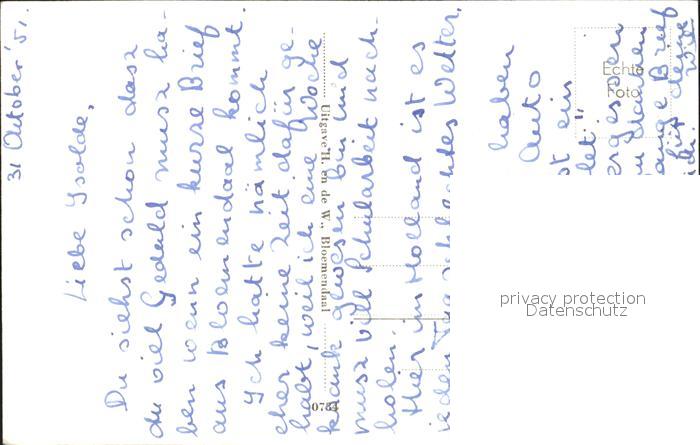 31 October '51.
Liebe Ysolde,
Du siehst schon dasz
du viel Geduld musz ha-
ben wenn ein kurze Brief
aus Bloemendaal kommt.
Ich hätte nämlich
eher keine Zeit dafür ge-
habt, weil ich eine Woche
krank gewesen bin und
musz viel Schularbeit nach-
holen.
Hier in Holland ist es
jeden Tag schlechtes Wetter.
haben
Auto
st ein
let"
ergessen
danken
Brief
für
Echte
Foto
Uitgave H. en de W., Bloemendaal
078
privacy protection
Datenschutz